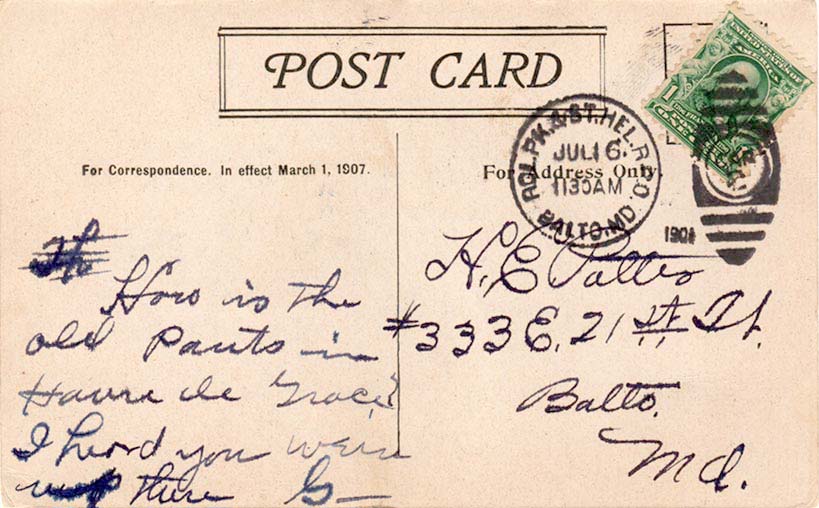 POST CARD
For Correspondence. In effect March 1, 1907.
For Address Only.
UNITED STATES OF AMERICA
1
ONE
ROL.PK.& ST.HEL.R.P.O.
JUL 16
1130AM
BALTO.MD.
1908
How is the
old Pants in
Havre de Grace?
I heard you were
up there G—
H. E.
#333 E. 21 st St.
Balto.
Md.